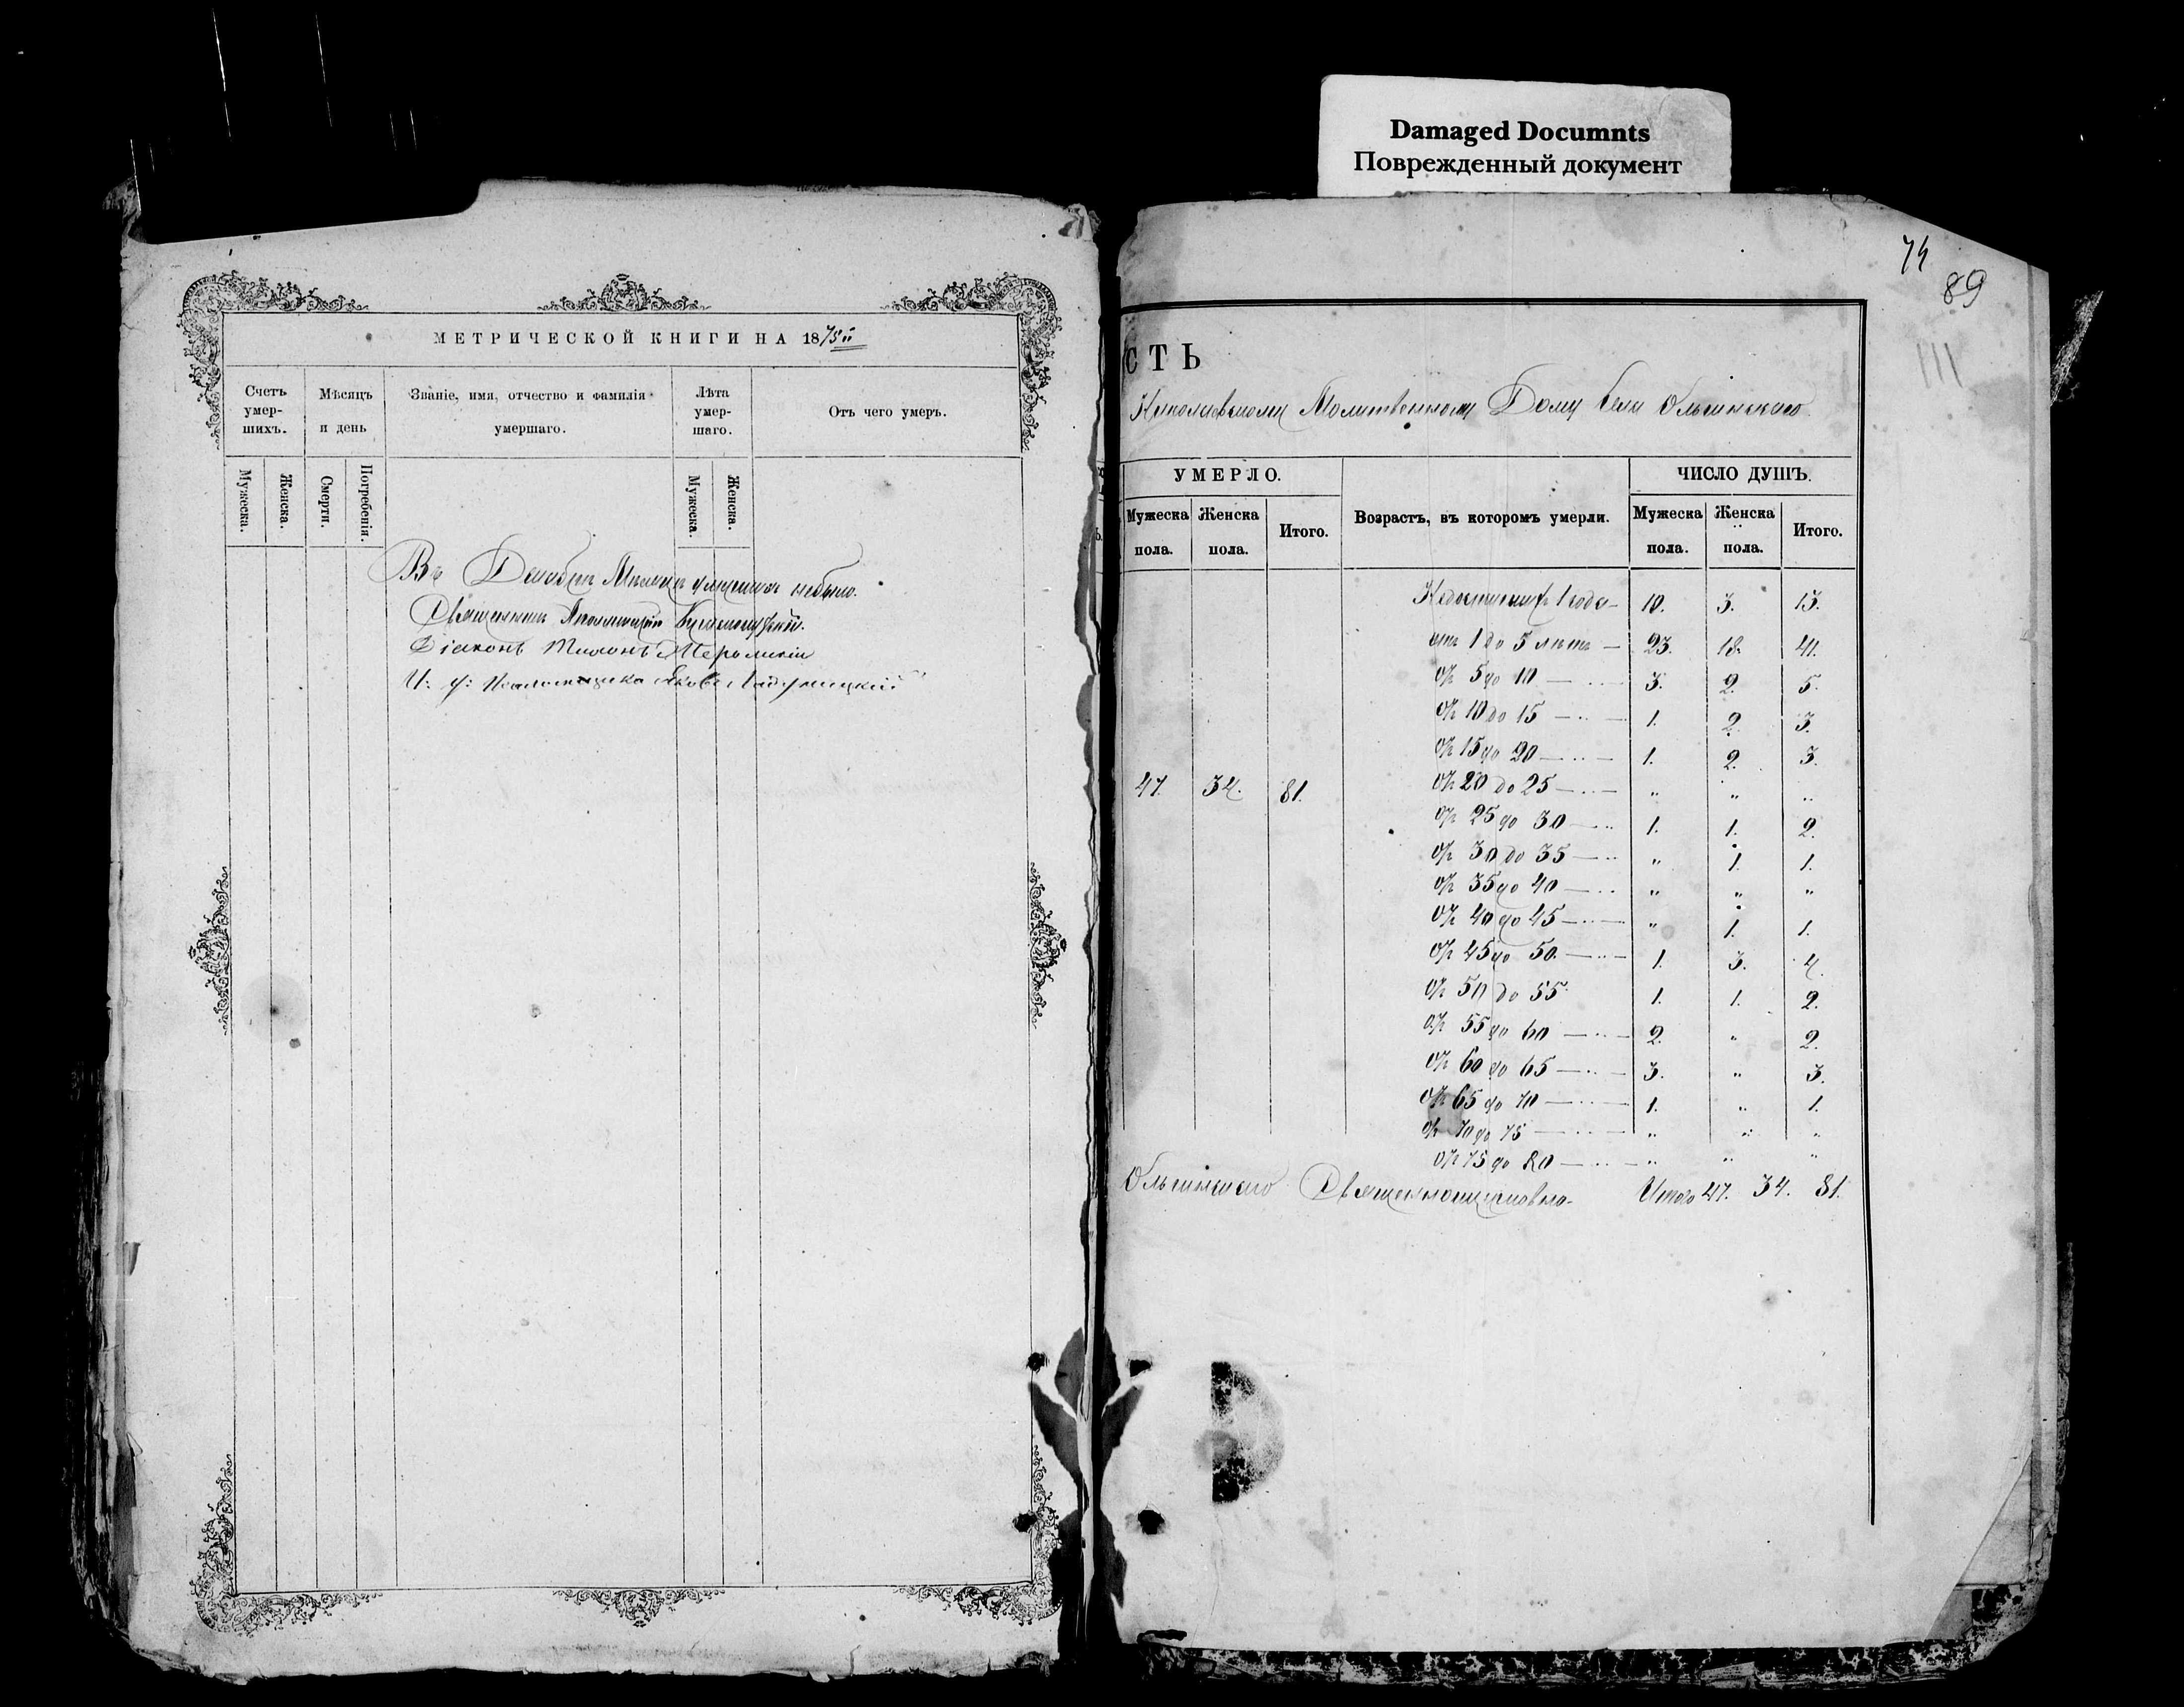 Damaged Documnts
Поврежденный документ
МЕТРИЧЕСКОЙ КНИГИ НА 1875й
Счетъ умер-шихъ.
Мѣсяцъ и день
Званіе, имя, отчество и фамилія умершаго.
Лѣта умер-шаго.
Отъ чего умеръ.
Мужеска.
Женска.
Смерти.
Погребенія.
Мужеска.
Женска.
Въ Декабрѣ Мѣсяцѣ умершихъ небыло.
Священникъ
Діаконъ
И. д. Псаломщика Яковъ
74
89
III
СТЬ
Николаевскому Молитвенному Дому села Ольгинскаго.
УМЕРЛО.
Возрастъ, въ которомъ умерли.
ЧИСЛО ДУШЪ.
Мужеска пола.
Женска пола.
Итого.
Мужеска пола.
Женска пола.
Итого.
1 года 10. 3. 13.
отъ 1 до 5 лѣтъ 23. 18. 41.
отъ 5 до 10 3. 2. 5.
отъ 10 до 15 1. 2. 3.
отъ 15 до 20 1. 2. 3.
47. 34. 81.
отъ 20 до 25 " " "
отъ 25 до 30 1. 1. 2.
отъ 30 до 35 " 1. 1.
отъ 35 до 40 " " "
отъ 40 до 45 " 1. 1.
отъ 45 до 50. 1. 3. 4.
отъ 50 до 55 1. 1. 2.
отъ 55 до 60 2. " 2.
отъ 60 до 65 3. " 3.
отъ 65 до 70 1. " 1.
отъ 70 до 75 " " "
отъ 75 до 80 " " "
Ольгинскаго Итого 47. 34. 81.